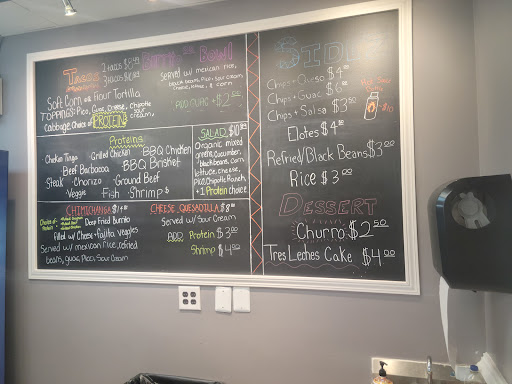 Tacos
2 tacos $8
3 tacos
Soft Corn or Flour Tortilla
TOPPINGS: Pico, Guac, Cheese, Chipotle sour cream,
Cabbage Choice of PROTEIN
Burrito or Bowl
Served w/ mexican rice,
black beans, Pico, sour cream,
cheese, & corn
ADD GUAC + $2.50
Proteins
Chicken Tinga Grilled Chicken BBQ Chicken
Beef Barbacoa BBQ Brisket
Steak Chorizo Ground Beef
Veggie Fish Shrimp $
SALAD $10
Organic mixed
greens, Cucumber,
black beans, corn
lettuce, cheese,
pico, Chipotle Ranch
+ 1 Protein choice
CHIMICHANGA
Choice of
Deep Fried Burrito
filled w/ cheese + fajita veggies
Served w/ mexican rice, refried
beans, guac, Pico, Sour Cream
CHEESE QUESADILLA $8
Served w/ Sour Cream
ADD Protein $3.00
Shrimp $4.00
SIDES
Chips + Queso $4.00
Chips + Guac $6.00
Chips + Salsa $3.50
Elotes $4.00
Refried/Black Beans $3.00
Rice $3.00
$10
DESSERT
Churro $2.50
Tres Leches Cake $4.00